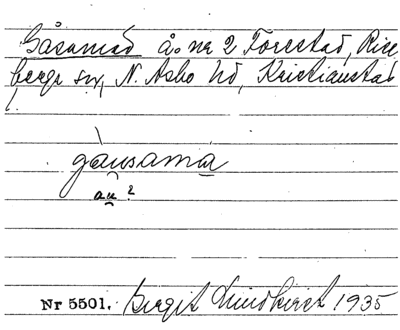 Gåsamad å. nr 2 Forestad, Rise
bergs sn, N. Åsbo hd, Kristianstad
l.
gàusamà
au ?
Nr 5501. Birgit Lundkvist 1935